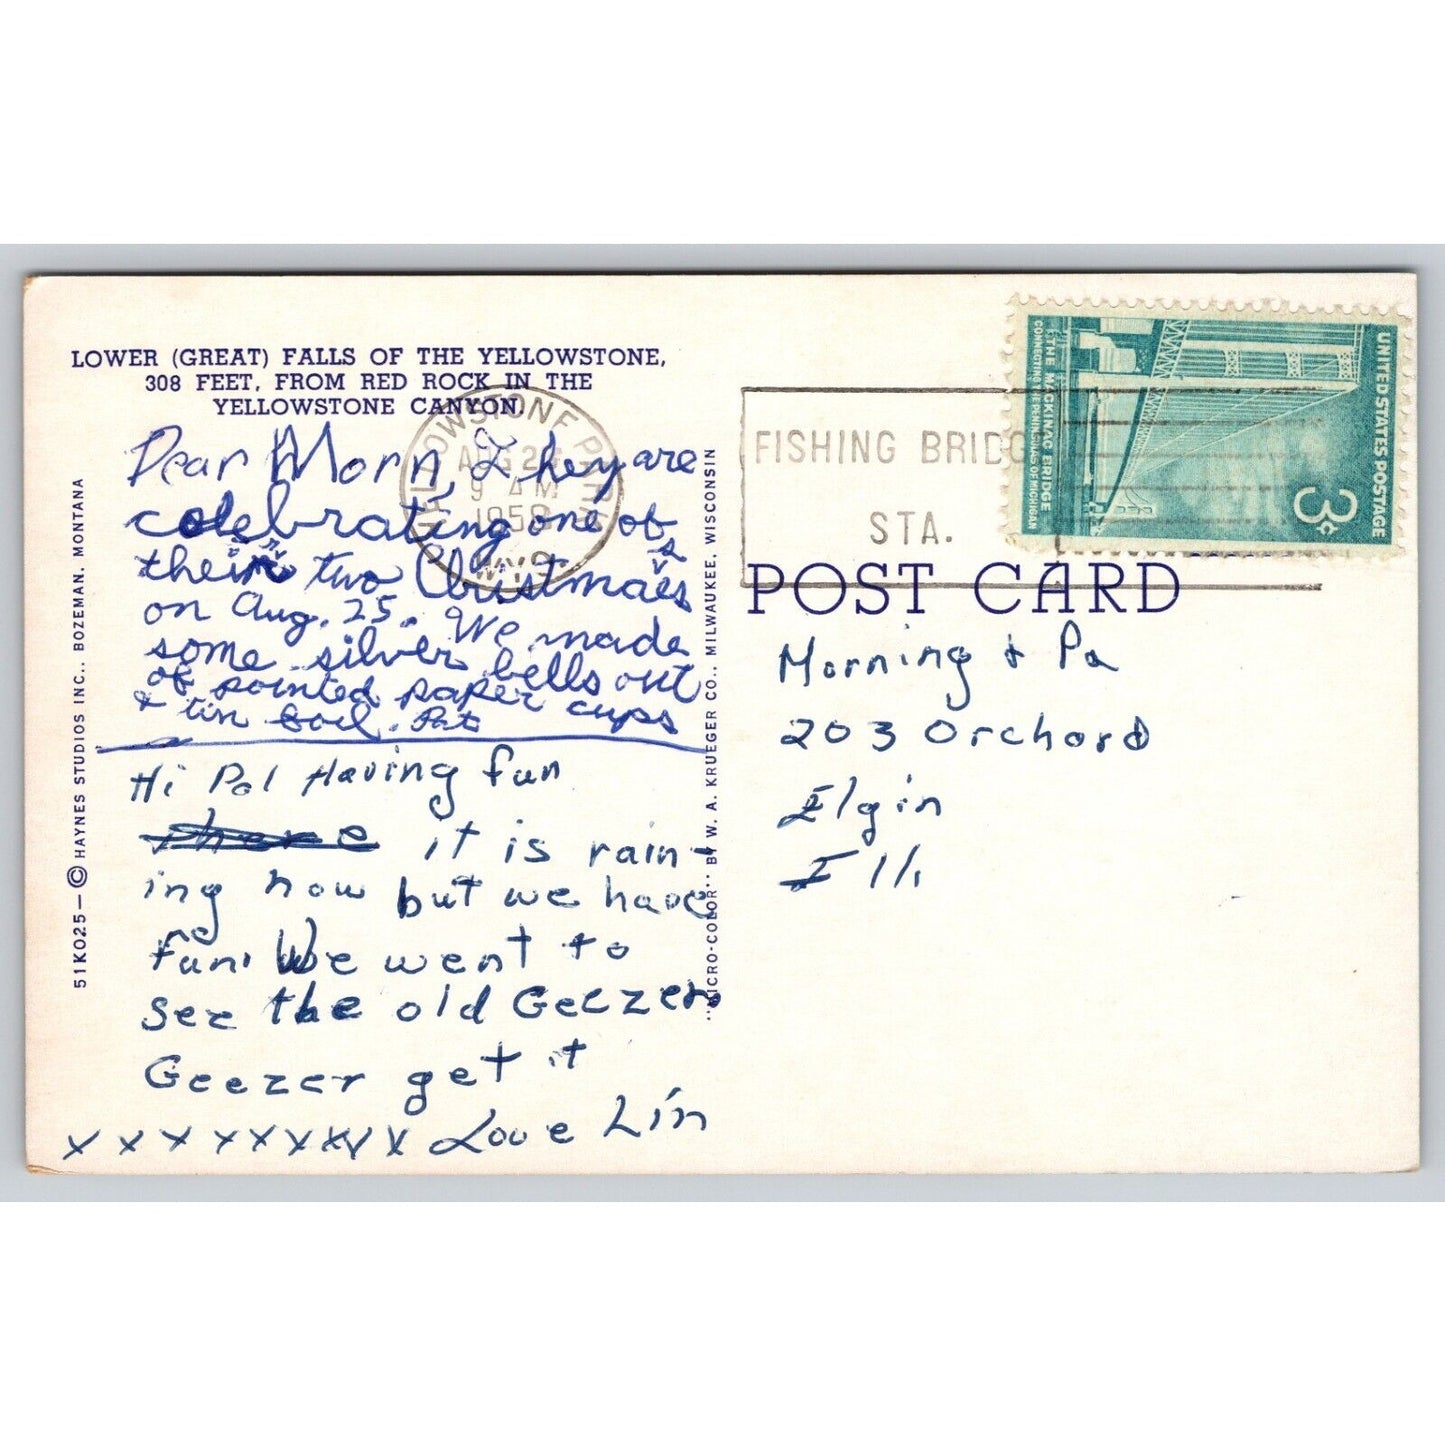 LOWER (GREAT) FALLS OF THE YELLOWSTONE,
308 FEET, FROM RED ROCK IN THE
YELLOWSTONE CANYON.
Dear Morn, They are
celebrating one of
their two Christmases
on Aug. 25. We made
some silver bells out
of pointed paper cups
& tin foil. Pat
Hi Pal Having fun
there it is rain-
ing now but we have
fun. We went to
see the old Geezer
Geezer get it
x x x x x x x x x x Love Lin
51K025—© HAYNES STUDIOS INC., BOZEMAN, MONTANA
"MICRO-COLOR" BY W. A. KRUEGER CO., MILWAUKEE, WISCONSIN
YELLOWSTONE PARK
AUG 2
9 AM
1958
WYO.
FISHING BRIDGE
STA.
UNITED STATES POSTAGE
3¢
THE MACKINAC BRIDGE
CONNECTING THE PENINSULAS OF MICHIGAN
POST CARD
Morning & Pa
203 Orchard
Elgin
Ill.